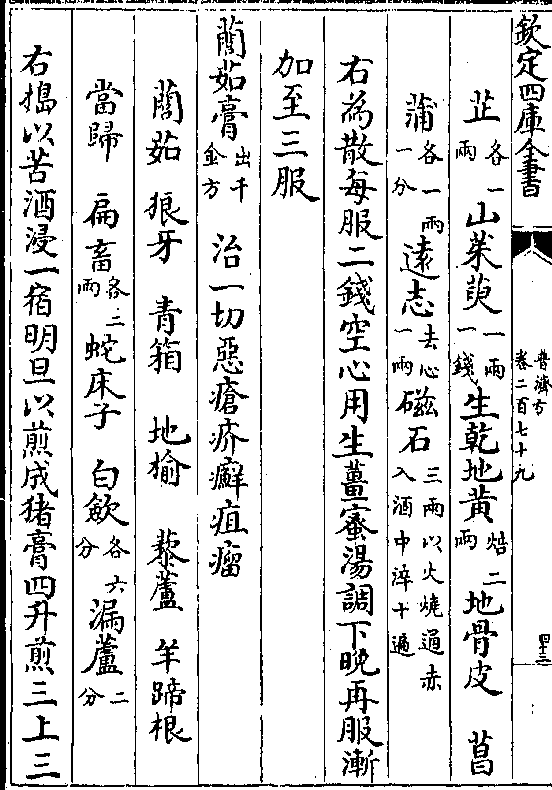 欽定四庫全書
普濟方
卷二百七十九
芷各一兩山茱萸一兩一錢生乾地黃焙二兩地骨皮 菖
蒲各一兩一分遠志去心一兩磁石三兩以火燒通赤入酒中淬十遍
右為散每服二錢空心用生薑蜜湯調下晚再服漸
加至三服
䕡茹膏出千金方 治一切惡瘡疥癬疽瘤
䕡茹 狼牙 青箱 地榆 藜蘆 羊蹄根
當歸 扁畜各二兩蛇床子 白歛各六分漏蘆二分
右搗以苦酒浸一宿明旦以煎成猪膏四升煎三上三